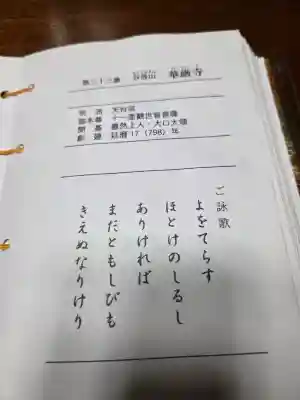 第三十三番 谷汲山 華厳寺
宗派 天台宗
御本尊 十一面観世音菩薩
開基 豊然上人・大口大領
創建 延暦17(798)年
ご詠歌
よをてらす
ほとけのしるし
ありければ
まだともしびも
きえぬなりけり